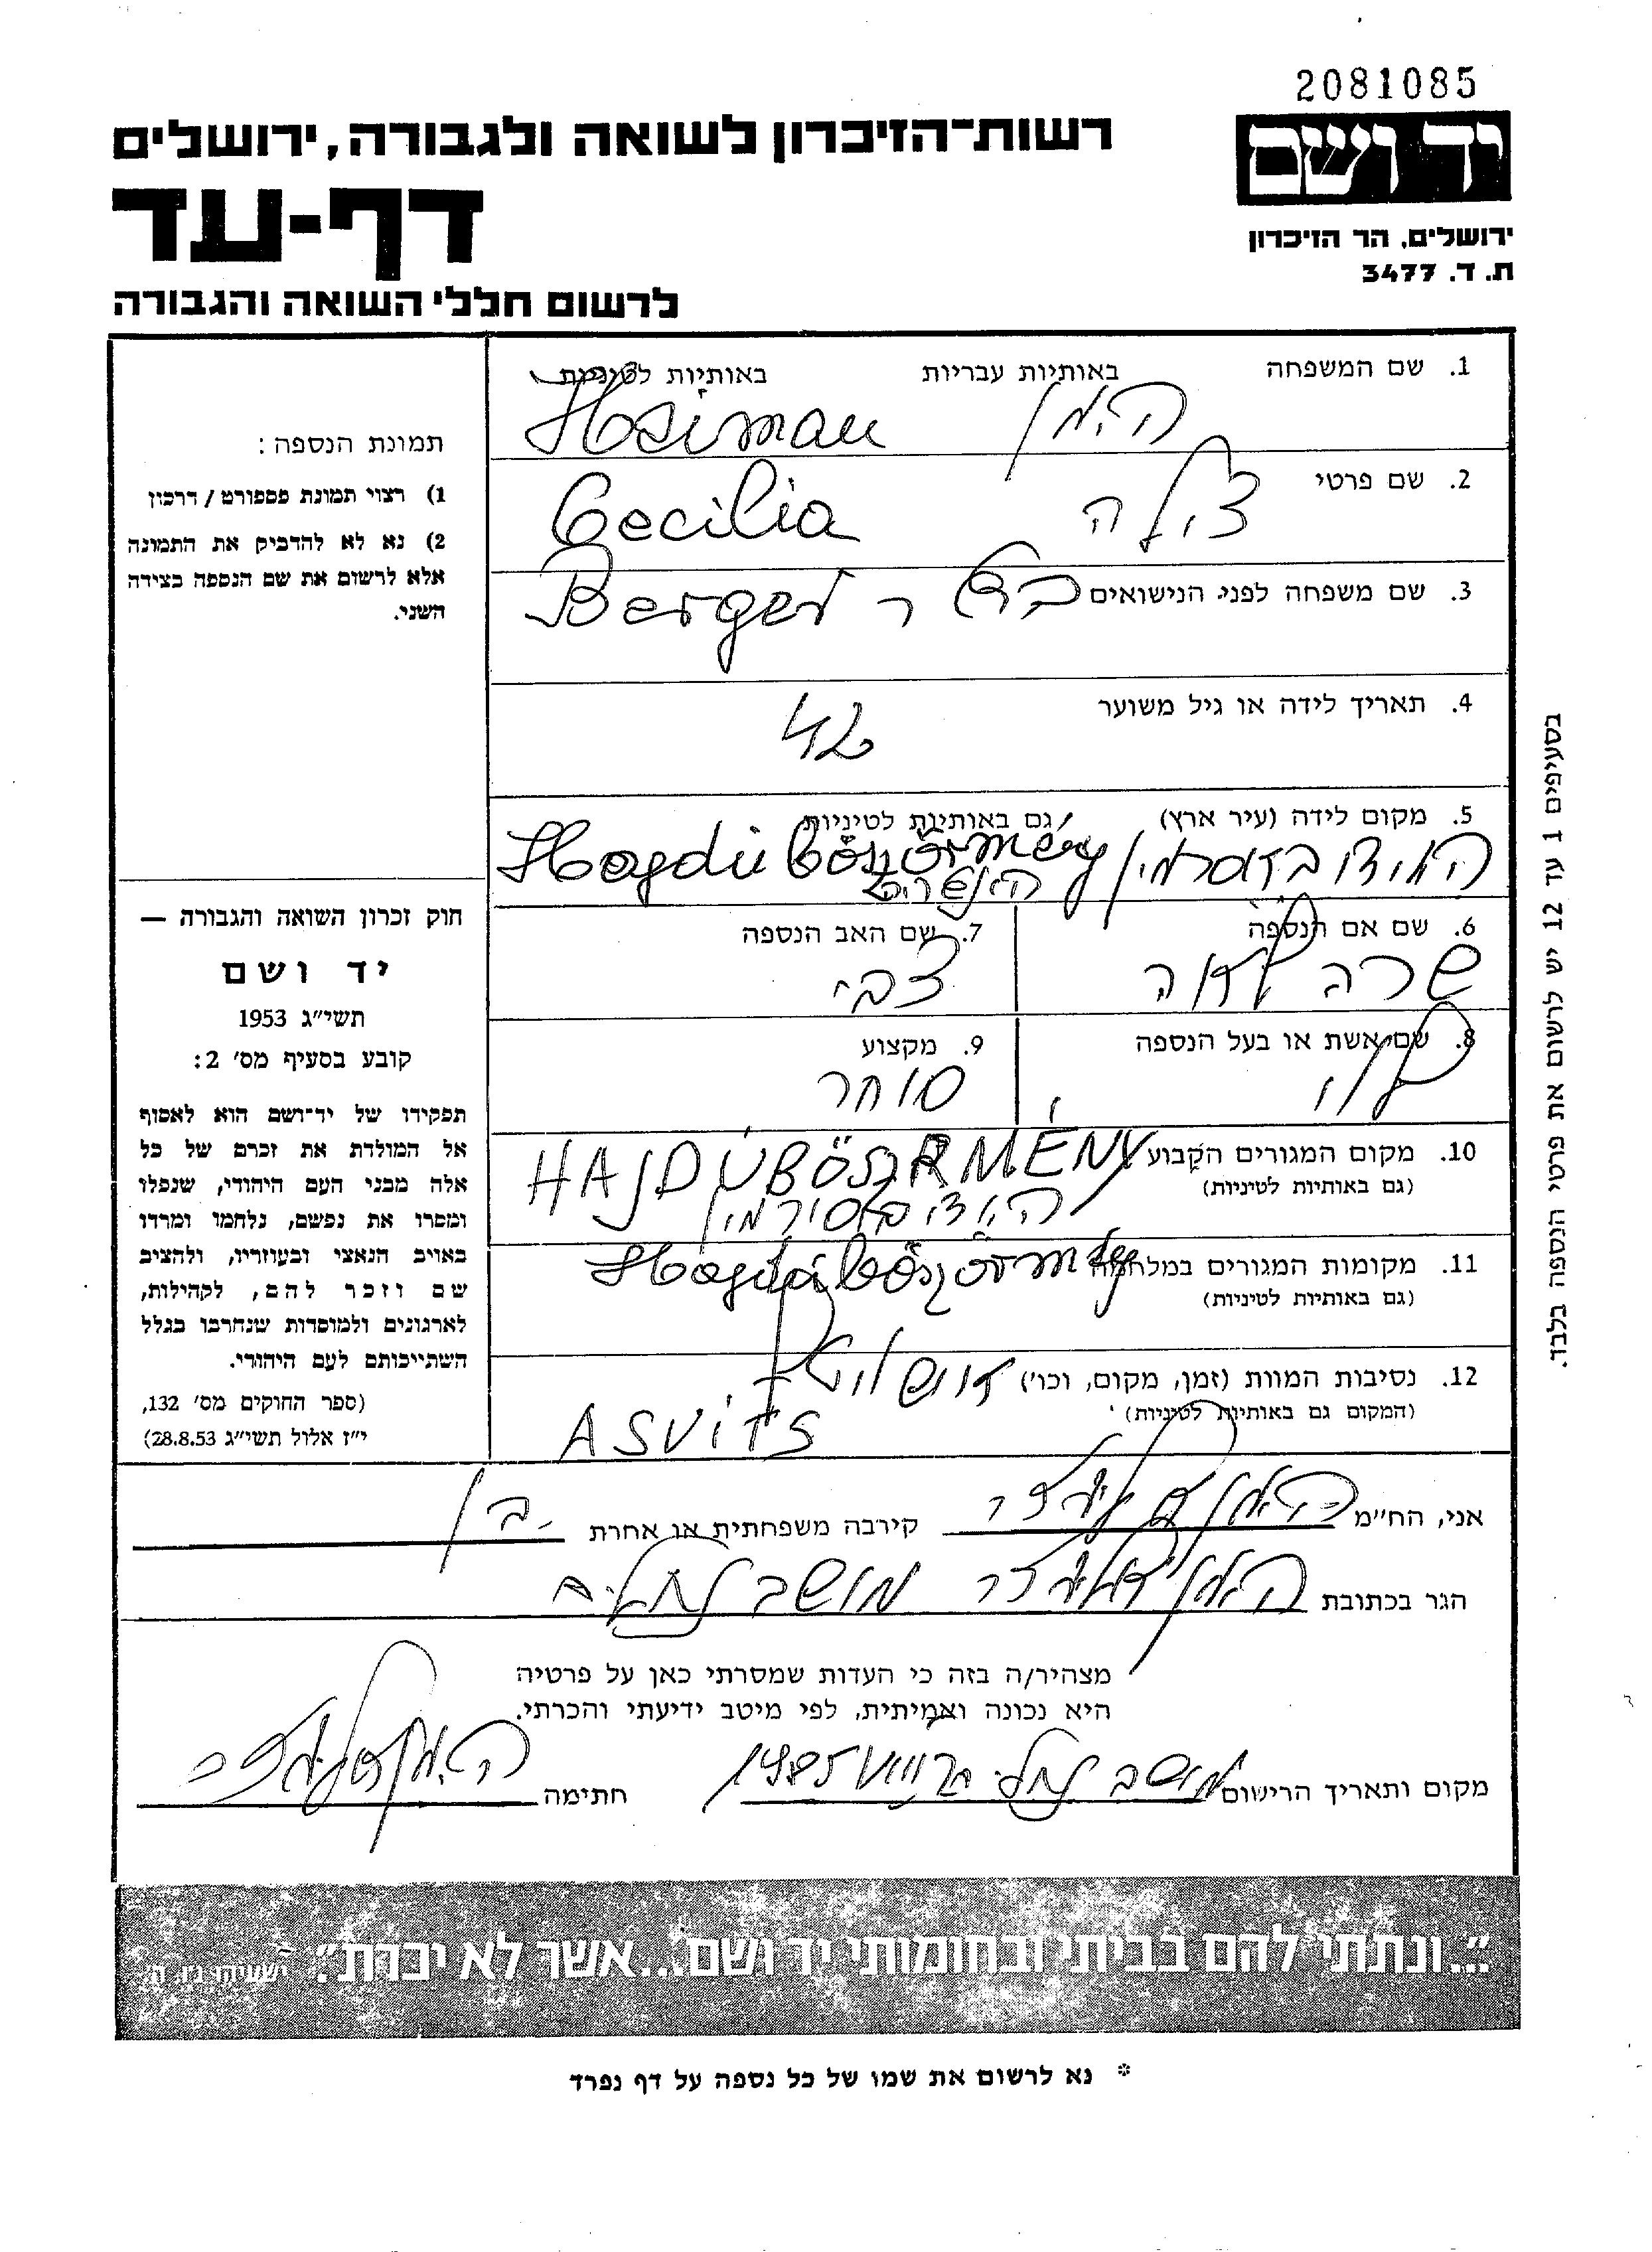 2081085
יד ושם
ירושלים, הר הזיכרון
ת. ד. 3477
רשות-הזיכרון לשואה ולגבורה, ירושלים
דף-עד
לרשום חללי השואה והגבורה
1. שם המשפחה באותיות עבריות באותיות לטיניות
הימן Heiman
2. שם פרטי צילה Cecilia
3. שם משפחה לפני הנישואים ברגר Berger
4. תאריך לידה או גיל משוער
42
5. מקום לידה (עיר ארץ) גם באותיות לטיניות
Hagdúböszörmény
6. שם אם הנספה
שרה לאה
7. שם האב הנספה
צבי
8. שם אשת או בעל הנספה
9. מקצוע
סוחר
10. מקום המגורים הקבוע HAJDÚBÖSZRMÉNY
(גם באותיות לטיניות)
11. מקומות המגורים במלחמה Hagdúböszörmény
(גם באותיות לטיניות)
12. נסיבות המוות (זמן, מקום, וכו') אושוויץ
(המקום גם באותיות לטיניות)
ASVITS
תמונת הנספה:
1) רצוי תמונת פספורט / דרכון
2) נא לא להדביק את התמונה
אלא לרשום את שם הנספה בצידה
השני.
חוק זכרון השואה והגבורה —
יד ושם
תשי"ג 1953
קובע בסעיף מס' 2:
תפקידו של יד-ושם הוא לאסוף
אל המולדת את זכרם של כל
אלה מבני העם היהודי, שנפלו
ומסרו את נפשם, נלחמו ומרדו
באויב הנאצי ובעוזריו, ולהציב
שם וזכר להם, לקהילות,
לארגונים ולמוסדות שנחרבו בגלל
השתייכותם לעם היהודי.
(ספר החוקים מס' 132,
י"ז אלול תשי"ג 28.8.53)
בסעיפים 1 עד 12 יש לרשום את פרטי הנספה בלבד.
אני, הח"מ הימן אליעזר קירבה משפחתית או אחרת בן
הגר בכתובת הימן אליעזר מושב נחלים
מצהיר/ה בזה כי העדות שמסרתי כאן על פרטיה
היא נכונה ואמיתית, לפי מיטב ידיעתי והכרתי.
מקום ותאריך הרישום מושב 1985 חתימה הימן אליעזר
"...ונתתי להם בביתי ובחומותי יד ושם... אשר לא יכרת". ישעיהו נ"ו, ה'.
* נא לרשום את שמו של כל נספה על דף נפרד